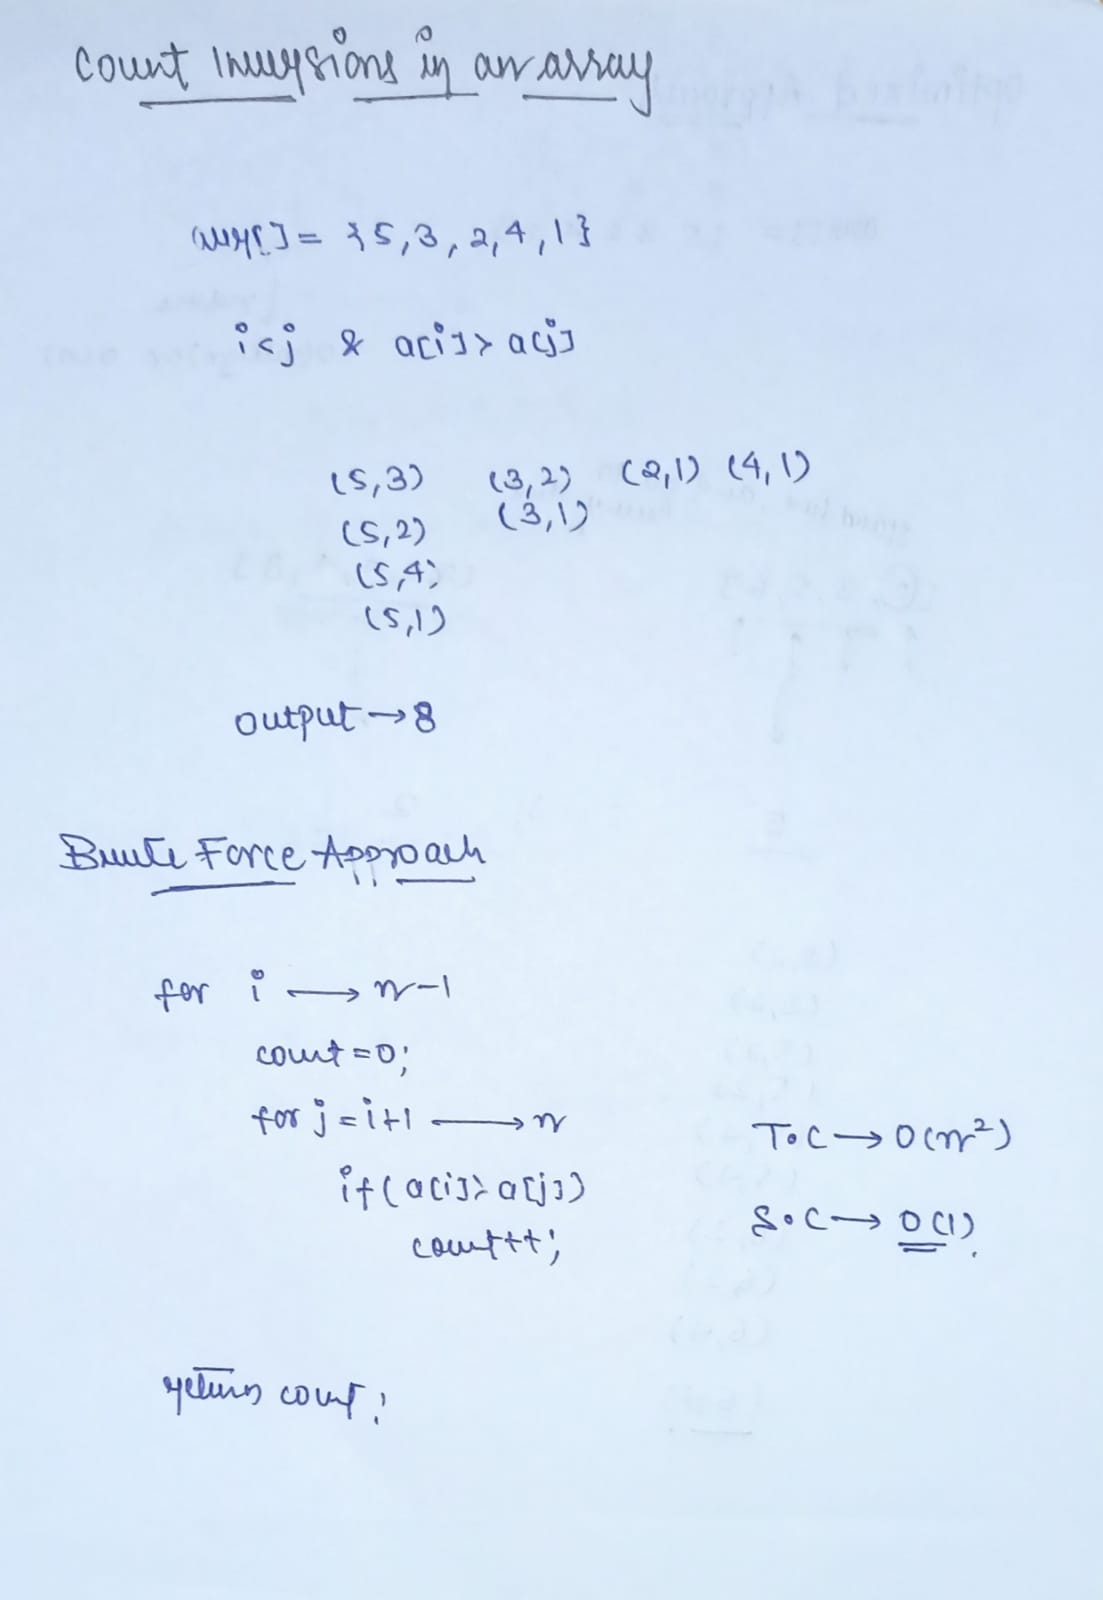 Count Inversions in an array
arr[] = {5,3,2,4,1}
i<j & a[i]> a[j]
(5,3) (3,2) (2,1) (4,1)
(3,1)
(5,2)
(5,4)
(5,1)
output → 8
Brute Force Approach
for i → n-1
count=0;
for j=i+1 → n
T.C → O(n²)
if(a[i]> a[j])
S.C → O(1).
count++;
return count;